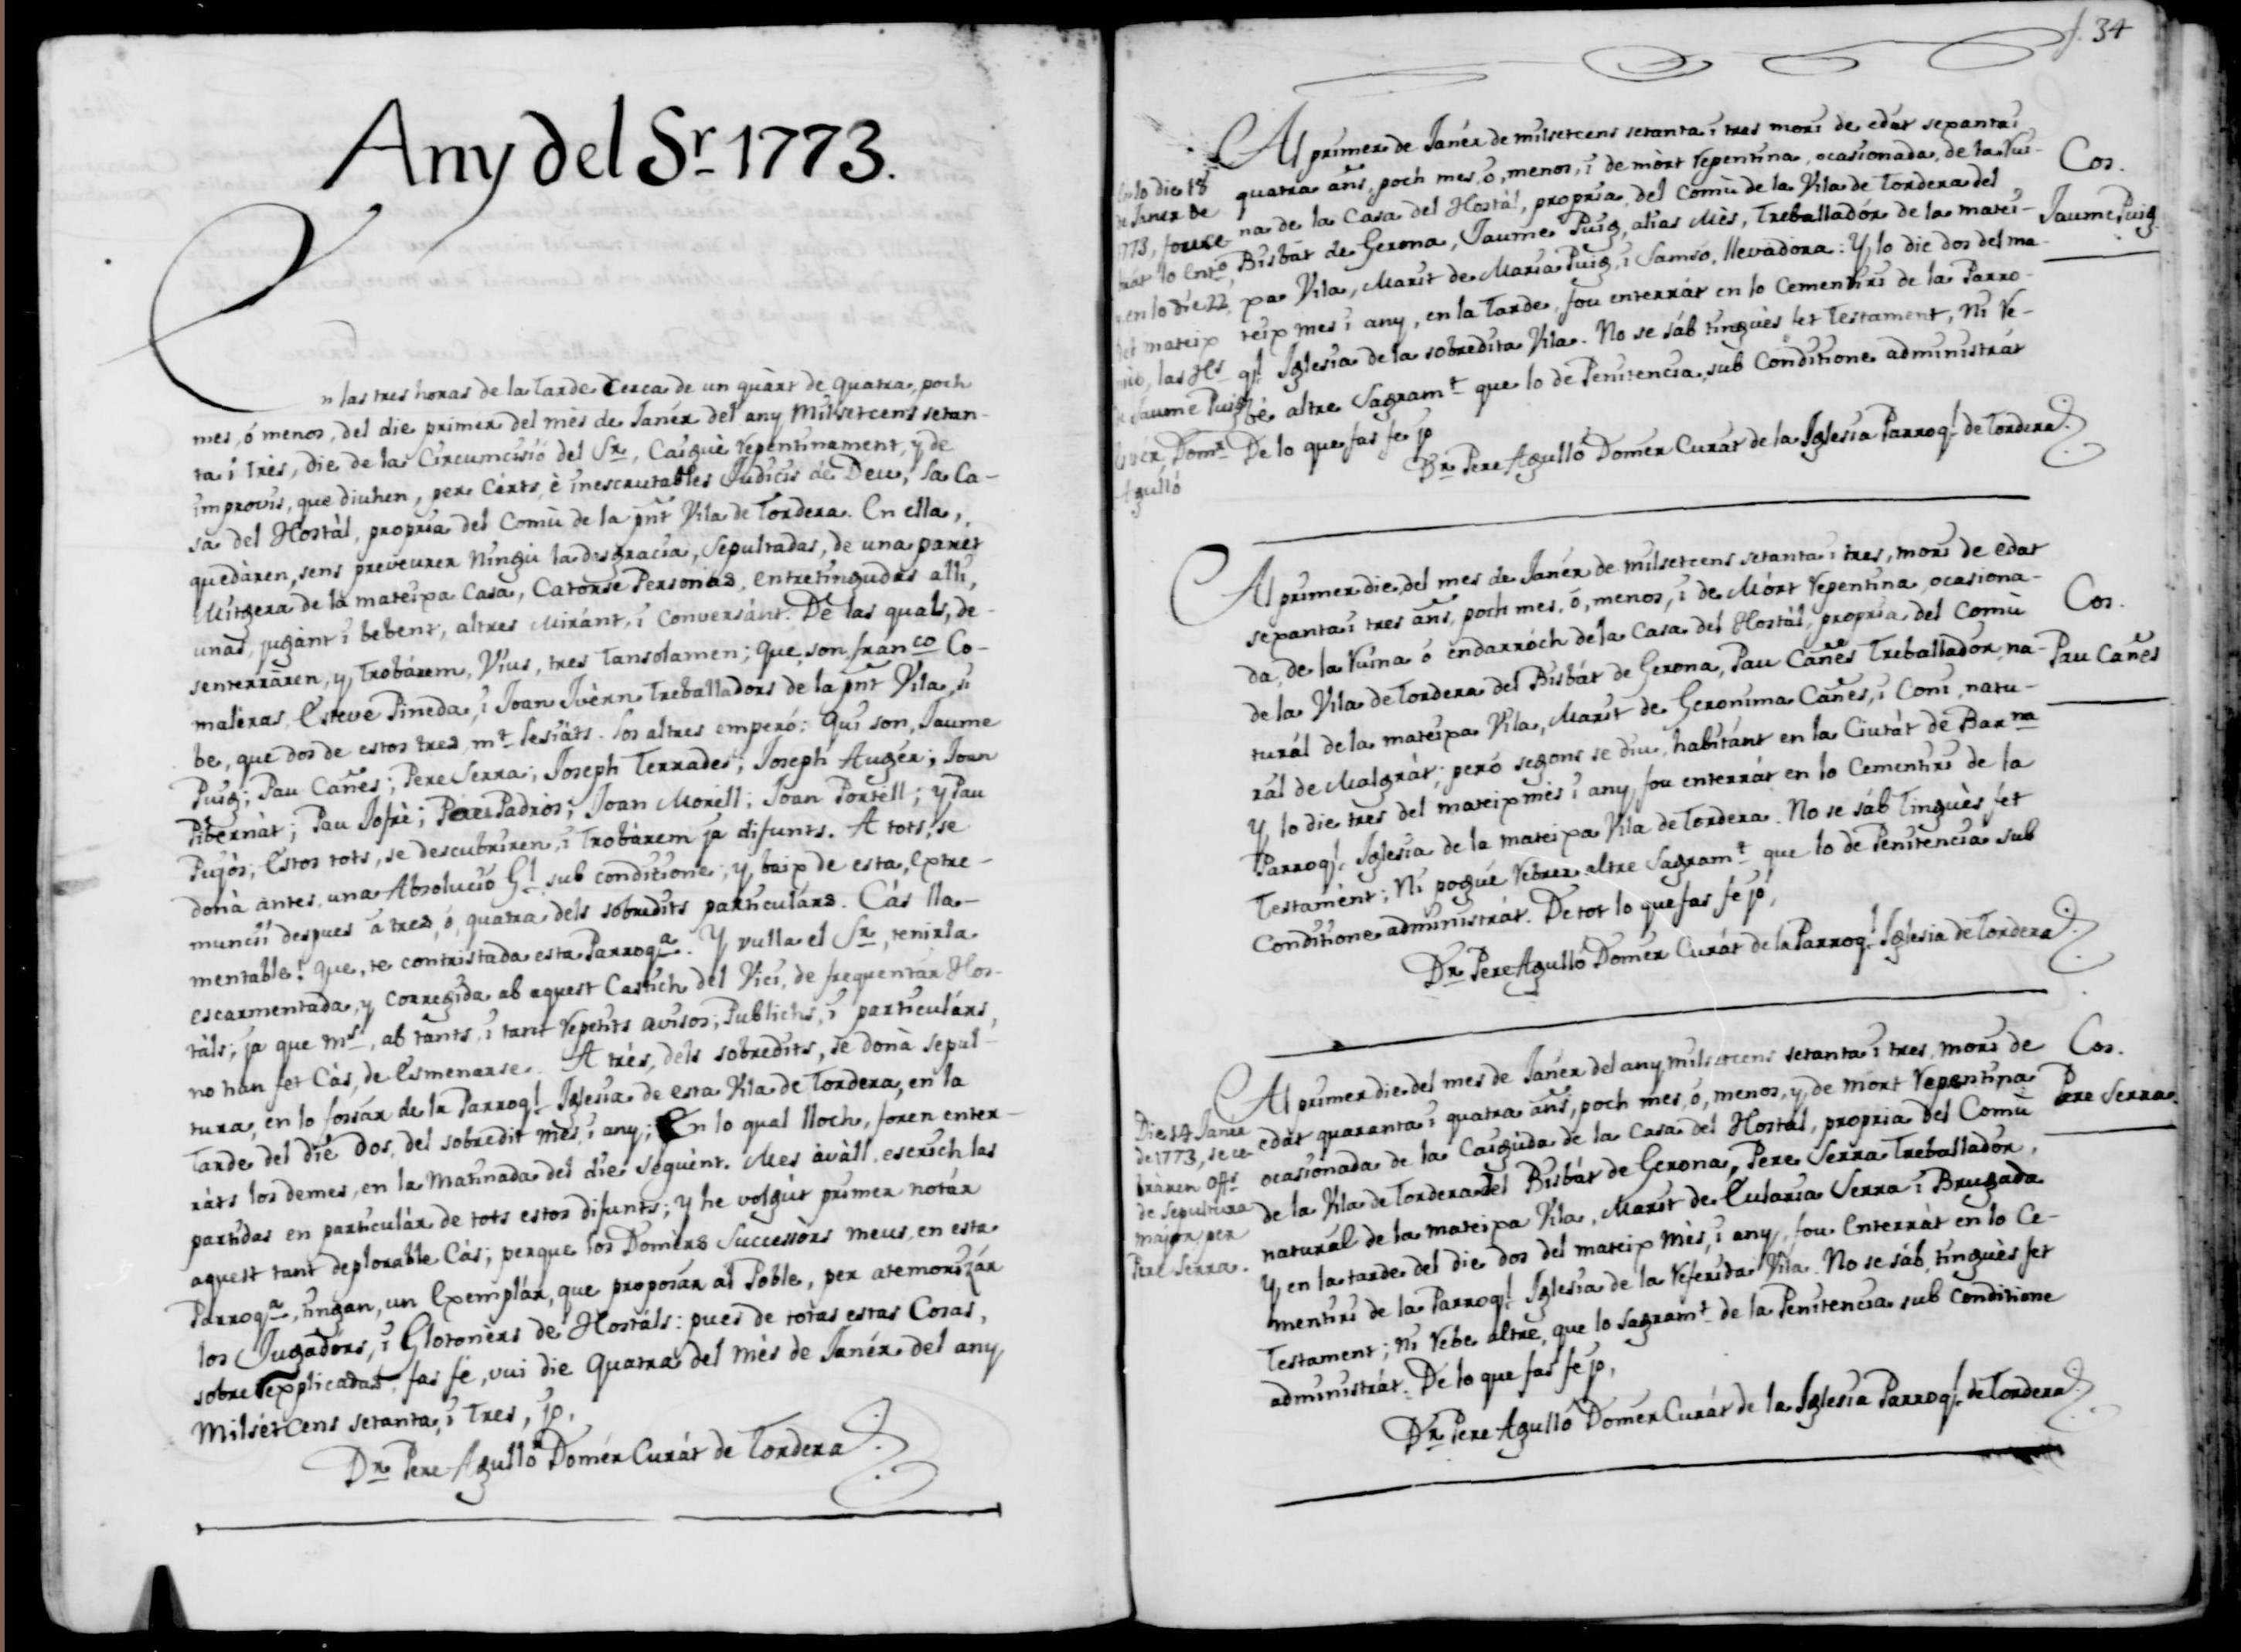 Any del Sr. 1773.
En las tres horas de la Tarde Cerca de un quàrt de quatra, poch
mes, ó menos, del die primer del mès de Janér del any Milsetcens setan-
ta i Très, die de la Circumcisió del Sr., Caiguè repentinament, y de
improvis, que diuhen, per Cérts, è inescrutables Judicis de Deu, La Ca-
sa del Hostàl, propria del Comù de la pñt Vila de Tordera. En ella,
quedàren, sens preveurer Ningù la desgracia, Sepultadas, de una parèt
Mitgera de la mateixa Casa, Catorse Personas, entretingudas alli,
unas, jugànt i bebent, altres Mirànt, i Conversànt. De las quals, de-
senterràren, y Trobàrem, Vius, tres Tansolamen; Que, son, franco Co-
malèras, Esteve Pineda, i Joan Ivèrn Treballadors de la pñt Vila, si
be, que dos de estos tres, mt. lesiàts. Los altres emperó; Qui son, Jaume
Puig; Pau Cañes; Pere Serra; Joseph Terrades; Joseph Augér; Joan
Pibernàt; Pau Jofrè; Pere Padròs; Joan Morèll; Joan Portèll; y Pau
Pujòs; Estos tots, se descubriren, i Trobàrem ja difunts. A tots, se
donà àntes, una Absolució Gl. sub conditione; y, baix de esta, Extre-
munciì despues à tres, ò, quatra dels sobredits particulárs. Càs lla-
mentable! Que, te contristada esta Parroqa. Y vulla el Sr., tenirla
escarmentada, y corregida ab aquest Castich del Vici, de frequentár Hos-
tàls; ja que ms., ab tànts, i tant repetits avisos, Publichs, i particulárs,
no han fet Càs, de Esmenarse. A très, dels sobredits, se donà sepul-
tura, en lo fossàr de la Parroql. Iglesia de esta Vila de Tordera, en la
Tarde del die dos, del sobredit mès, i any; En lo qual lloch, foren enter-
ràts los demes, en la Matinada del die següènt. Mes avàll, escrich las
partidas en particulàr de tots estos difunts; y he volgùt primer notár
aquest tant deplorable Càs; perque los Domèrs Successòrs meus, en esta
Parroqa., tingan, un Exemplár, que proposàr al Poble, per atemorizár
los Jugadórs, i Glotonèrs de Hostáls: pues de totas estas Cosas,
sobre explicadas, fas fé, vui die Quatra del mès de Janér del any
Milsétcens setanta, i Tres, jo,
Dr. Pere Agulló Domér Curát de Tordera
f. 34
Al primer de Janér de milsetcens setanta i tres morí de edàt sexanta i
quatra añs, poch mes, ó, menos, i de mòrt repentina, ocasionada, de la Rui-
na de la Casa del Hostàl, propria, del Comù de la Vila de Tordera del
Bisbàt de Gerona, Jaume Puig, alias Mès, Treballadór de la matei-
xa Vila, Marit de Maria Puig, i Samsó, llevadora: Y, lo die dos del ma-
teix mes i any, en la Tarde, fou enterràt en lo Cementiri de la Parro-
ql. Iglesia de la sobredita Vila. No se sáb tinguès fet Testament, Ni re-
bé altre Sagramt. que lo de Penitencia, sub Conditione administràt
De lo que fas fe jo
Dr. Pere Agulló Domér Curát de la Iglesia Parroql. de Tordera.
Cos.
Jaume Puig
En lo die 18
de Janer de
1773, fou ce-
en lo die 22,
del mateix
de Jaume Puig
Domr.
Agulló
Al primer die, del mes de Janér de milsetcens setanta i tres, morí de edat
sexanta i tres añs, poch mes, ó, menos, i de Mórt repentina, ocasiona-
da, de la Ruina ó endarròch de la Casa del Hostàl, propria, del Comù
de la Vila de Tordera del Bisbàt de Gerona, Pau Cañes Treballador, na-
turál de la mateixa Vila, Marit de Geronima Cañes, i Comi, natu-
rál de Malgràt; peró segons se diu, habitánt en la Ciutàt de Barna
Y, lo die très del mateix mès i any, fou enterràt en lo Cementiri de la
Parroql. Iglesia de la mateixa Vila de Tordera. No se sáb Tinguès fet
Testamènt; Ni pogué Rebrer altre Sagramt. que lo de Penitencia sub
Conditione administràt. De tot lo que fas fe jo,
Dr. Pere Agulló Domér Curát de la Parroql. Iglesia de Tordera
Cos.
Pau Cañes
Al primer die del mes de Janér del any milsetcens setanta i tres, morí de
edàt quaranta i quatra añs, poch mes, ó, menos, y, de mòrt Repentina
ocasionada de la Caiguda de la Casa del Hostàl, propria del Comù
de la Vila de Tordera del Bisbàt de Gerona, Pere Serra Treballadór,
naturál de la mateixa Vila, Marit de Eularia Serra i Brugada
Y, en la tarde del die dos del mateix Mès, i any, fou Enterràt en lo Ce-
mentiri de la Parroql. Iglesia de la Referida Vila. No se sáb, tinguès fet
Testament; Ni rebe altre, que lo Sagramt. de la Penitencia sub Conditione
administràt. De lo que fas fe jo,
Dr. Pere Agulló Domér Curát de la Iglesia Parroql. de Tordera.
Cos.
Pere Serra.
Die 14 Janer
de 1773, se ce-
braren Offs.
de Sepultura
major per
Pere Serra.